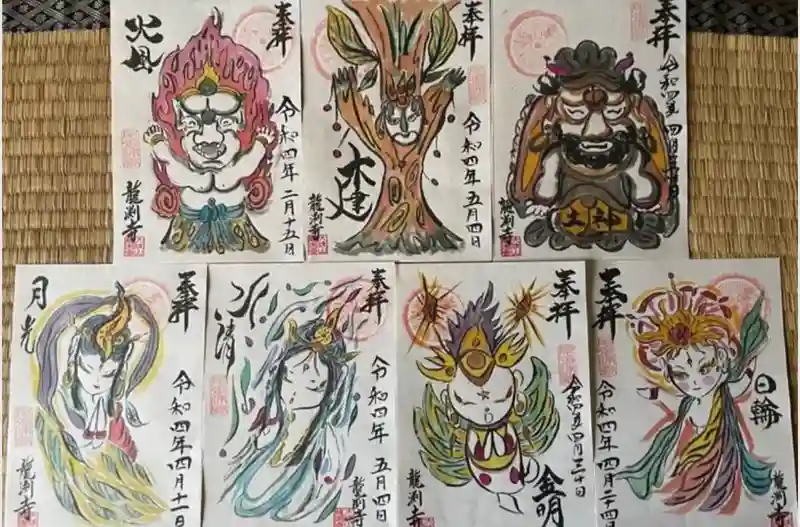 奉拝
火毋
令和四年 二月十五日
龍渕寺
奉拝
木建
令和四年 五月四日
龍渕寺
奉拝
土神
龍渕寺
奉拝
月光
令和四年四月十一日
龍渕寺
奉拝
水清
令和四年 五月四日
龍渕寺
奉拝
金明
令和四年四月三十日
龍渕寺
奉拝
日輪
令和四年 四月二十四
龍渕寺